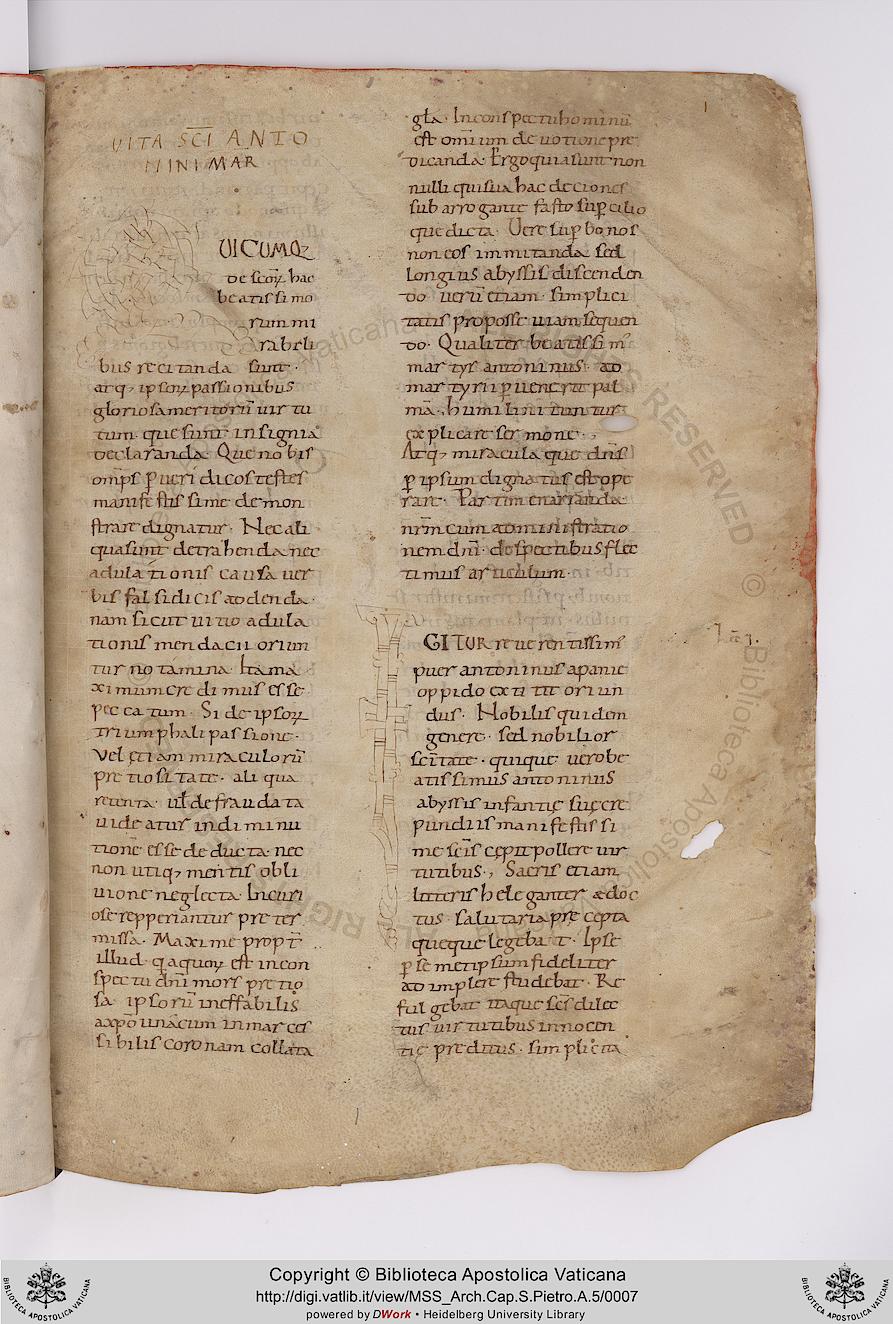 UITA SCI ANTO
NINI MAR
UICUMQ;
de scorum hac
beatissimo
rum mi
rabili
bus recitanda sunt.
atq; ipsorum passionibus
gloriosa meritorū uir tu
tum. que sunt insignia
declaranda. Que nobis
omps pueri di cos testes
manifestissime de mon
strare dignatur. Nec ali
qua sunt detrahenda nec
adulationis causa uer
bis falsidicis addenda.
nam sicut uitio adula
tionis mendacii oriun
tur
ximum credimus esse
peccatum. Si de ipsorum
triumphali passione.
Vel etiam miraculorū
pretiositate. aliqua
retenta. ul defraudata
uideatur in diminu
tione esse deducta. nec
non utiq; mentis obli
uione neglecta. Incuri
ose repperiantur preter
missa. Maxime propt
illud. est incon
spectu dni mors pretio
sa ipsorū ineffabilis
a xpo una cum inmarces
sibilis coronam collata
gla. In conspectu hominū
est omium deuotione pre
dicanda. Ergo quia sunt non
nulli qui sua hac
sub arrogante fasto supcilio
que dicta. Vere sup bonos
non eos immitanda sed
longius abyssis discenden
do uerū etiam. simplici
tatis proposse uiam sequen
do. Qualiter beatissim
martyr antoninus. ad
martyrii puenerit pal
mā. humili nituntur
explicare sermone.,
Atq; miracula que dns
p ipsum dignatus est ope
rare. Partim enarranda
nrm cum administratio
nem dni. despectibus flec
timus articulum.
IGITUR reuerentissim
puer antoninus apanie
oppido extitit oriun
dus. Nobilis quidem
genere. sed nobilior
scitate. quique uero be
atissimus antoninus
abyssis infantię suę cre
pundiis manifestissi
me scis cępit pollere uir
tutibus., Sacris etiam
litteris heleganter ędoc
tus. salutaria pręcepta
queque legebat. Ipse
p semetipsum fideliter
adimplere studebat. Re
fulgebat itaque scs dilec
tus uirtutibus innocen
tię preditus. simplicita